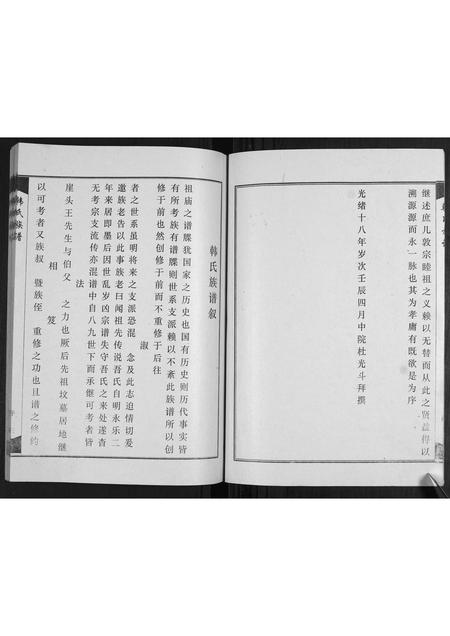 继述庶几敦宗睦祖之义赖以无替而从此之贤益得以
溯源源而永一脉也其为孝庸有既欲是为序
光绪十八年岁次壬辰四月中院杜光斗拜撰
韩氏族谱叙
祖庙之谱牒犹国家之历史也国有历史则历代事实皆
有所考族有谱牒则世系支派赖以不紊此族谱所以创
修于前也然创修于前而不重修于后往
淑
者之世系虽明将来之支派恐混 念及此志迫情切爰
邀族老告以此事族老曰闻祖先传说吾氏自明永乐二
年来居即墨后因世乱岁凶宗谱失守吾氏之来处遂杳
无考宗支流传亦混谱中自八九世下而承继可考者皆
法
崖头王先生与伯父 之力也厥后先祖坟墓居地继
相 笈
以可考者又族叔 暨族侄 重修之功也且谱之修约
韩氏族谱